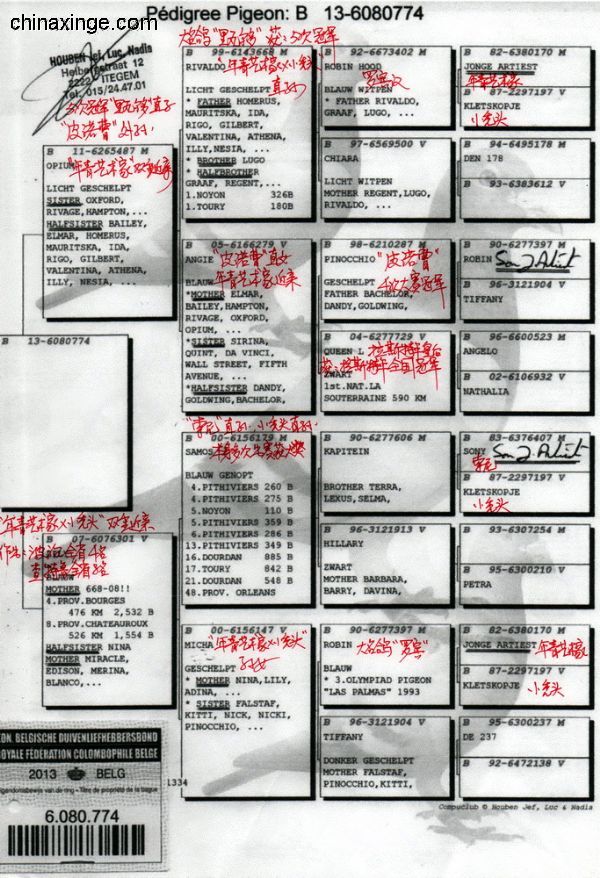 chinaxinge.com
Pédigree Pigeon: B 13-6080774
HOUBEN Jef, Luc, Nadia
12
2222 ITEGEM
Tel. 015/24.47.01
B 11-6265487 M
OPIUM
"年青艺术家"双重近亲
LICHT GESCHELPT
SISTER OXFORD,
RIVAGE,HAMPTON,...
HALFSISTER BAILEY,
ELMAR, HOMERUS,
MAURITSKA, IDA,
RIGO, GILBERT,
VALENTINA, ATHENA,
ILLY, NESIA, ...
B 13-6080774
B 07-6076301 V
MOTHER 668-08!!
4.PROV.BOURGES
476 KM 2,532 B
8.PROV.CHATEAUROUX
526 KM 1,554 B
HALFSISTER NINA
MOTHER MIRACLE,
EDISON, MERINA,
BLANCO,...
B 99-6143668 M
RIVALDO
"年青艺术家X小秃头"
直孙
LICHT GESCHELPT
* FATHER HOMERUS,
MAURITSKA, IDA,
RIGO, GILBERT,
VALENTINA, ATHENA,
ILLY,NESIA, ...
* BROTHER LUGO
* HALFBROTHER
GRAAF, REGENT,...
1.NOYON 326B
1.TOURY 180B
B 05-6166279 V
ANGIE
"皮诺曹"直女
年青艺术家近亲
BLAUW
*MOTHER ELMAR,
BAILEY,HAMPTON,
RIVAGE, OXFORD,
OPIUM, ...
* SISTER SIRINA,
QUINT, DA VINCI,
WALL STREET, FIFTH
AVENUE, ...
*HALFSISTER DANDY,
GOLDWING,BACHELOR,
B 00-6156179 M
SAMOS
BLAUW GENOPT
4.PITHIVIERS 260 B
4.PITHIVIERS 275 B
5.NOYON 110 B
5.PITHIVIERS 359 B
6.PITHIVIERS 286 B
13.PITHIVIERS 349 B
16.DOURDAN 885 B
17.TOURY 842 B
21.DOURDAN 548 B
48.PROV. ORLEANS
B 00-6156147 V
MICHA
"年青艺术家X小秃头"
孙女
GESCHELPT
* MOTHER NINA,LILY,
ADINA, ...
* SISTER FALSTAF,
KITTI, NICK, NICKI,
PINOCCHIO, ...
B 92-6673402 M
ROBIN HOOD
BLAUW WITPEN
* FATHER RIVALDO,
GRAAF, LUGO, ...
B 97-6569500 V
CHIARA
LICHT WITPEN
MOTHER REGENT,LUGO,
RIVALDO, ...
B 98-6210287 M
PINOCCHIO
"皮诺曹"
GESCHELPT
FATHER BACHELOR,
DANDY,GOLDWING,
B 04-6277729 V
QUEEN L
ZWART
1st.NAT.LA
SOUTERRAINE 590 KM
B 90-6277606 M
KAPITEIN
BROTHER TERRA,
LEXUS,SELMA,
B 96-3121913 V
HILLARY
ZWART
MOTHER BARBARA,
BARRY, DAVINA,
B 90-6277397 M
ROBIN
大铭鸽"罗宾"
BLAUW
* 3.OLYMPIAD PIGEON
"LAS PALMAS" 1993
B 96-3121904 V
TIFFANY
DONKER GESCHELPT
MOTHER FALSTAF,
PINOCCHIO,KITTI,
B 82-6380170 M
JONGE ARTIEST
年青艺术家
B 87-2297197 V
KLETSKOPJE
小秃头
B 94-6495178 M
DEN 178
B 93-6383612 V
B 90-6277397 M
ROBIN
B 96-3121904 V
TIFFANY
B 96-6600523 M
ANGELO
B 02-6106932 V
NATHALIA
B 83-6376407 M
SONY
索尼
B 87-2297197 V
KLETSKOPJE
小秃头
B 93-6307254 M
B 95-6300210 V
PETRA
B 82-6380170 M
JONGE ARTIEST 年青艺术家
B 87-2297197 V
KLETSKOPJE
小秃头
B 95-6300237 M
DE 237
B 92-6472138 V
Compuclub © Houben Jef, Luc & Nadia
KON. BELGISCHE DUIVENLIEFHEBBERSBOND
ROYALE FÉDÉRATION COLOMBOPHILE BELGE
2013 BELG
Eigendomsbewijs van de ring - Titre de propriété de la bague
1334
6.080.774